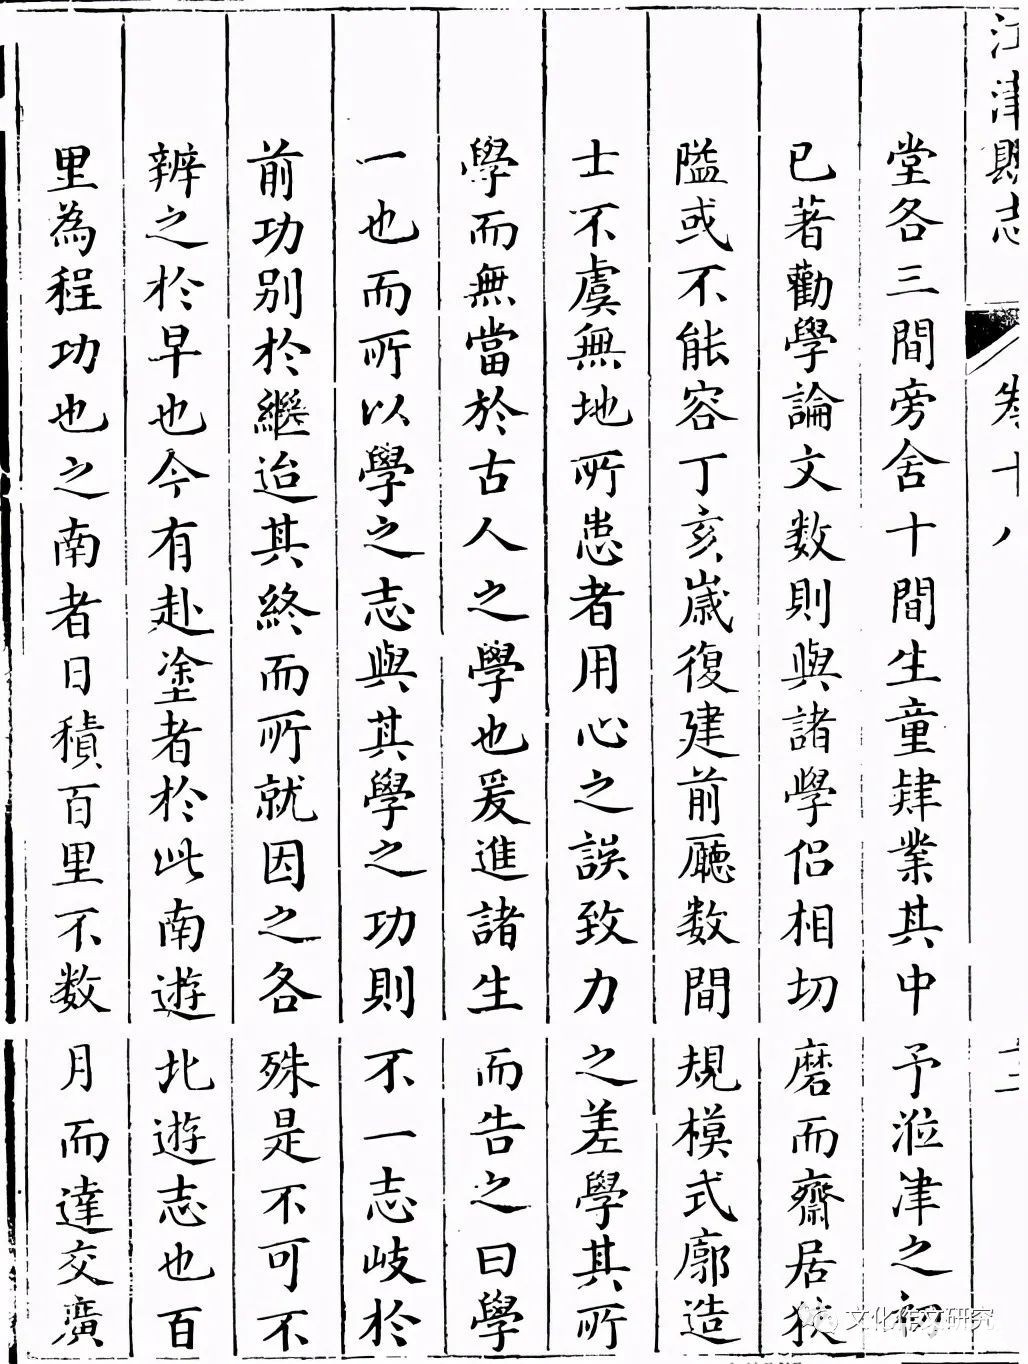 江津縣志
卷十八
堂各三間旁舍十間生童肄業其中予涖津之初
已著勸學論文数則與諸學侶相切磨而齋居狹
隘或不能容丁亥嵗復建前廳数間規模式廓造
士不虞無地所患者用心之誤致力之差學其所
學而無當於古人之學也爰進諸生而告之曰學
一也而所以學之志與其學之功則不一志岐於
前功别於繼迨其終而所就因之各殊是不可不
辨之於早也今有赴塗者於此南遊北遊志也百
里為程功也之南者日積百里不数月而達交廣
文化作文研究